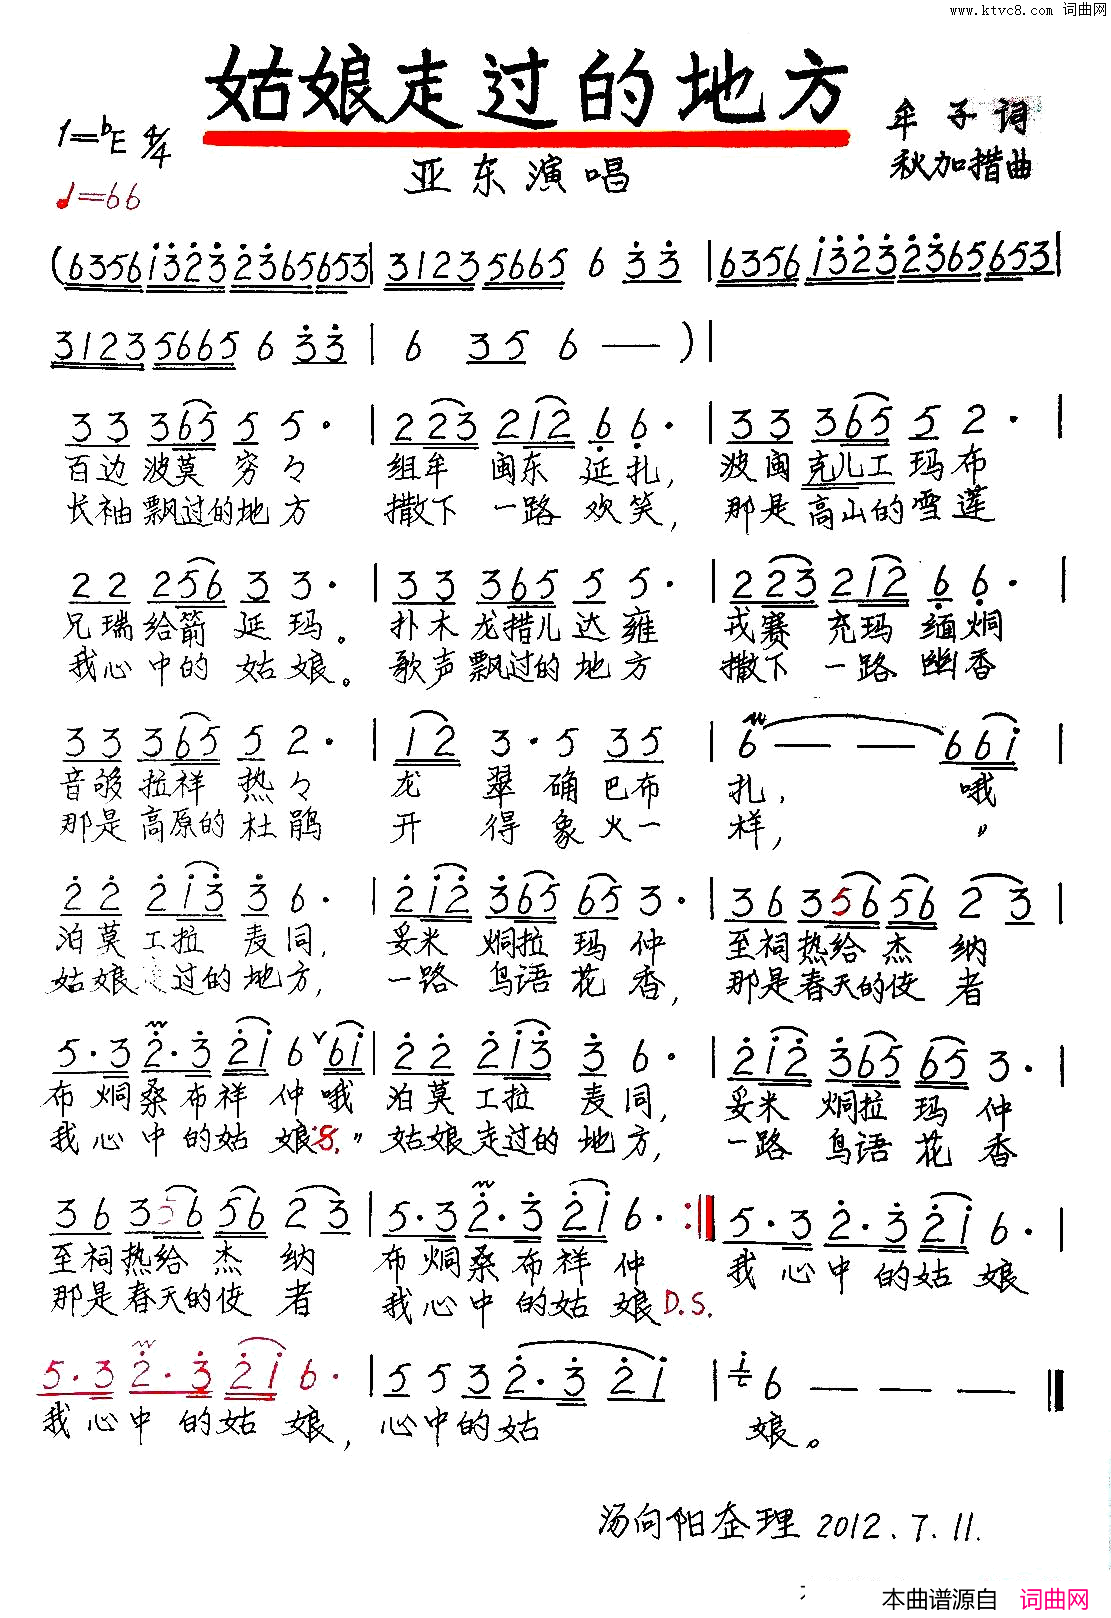 www.ktvc8.com 词曲网
姑娘走过的地方
1=bE 4/4
牟子词
♩=66
亚东演唱
秋加措曲
(6356i323 2365653| 31235665 6 33 |6356i323 2365653|
31235665 6 33 | 6 35 6 — )|
33 365 5 5· | 223 212 6 6· | 33 365 5 2· |
百边波莫穷々 组牟闽东延扎, 波闽克儿工玛布
长袖飘过的地方 撒下一路欢笑, 那是高山的雪莲
22 256 3 3· | 33 365 5 5· | 223 212 6 6· |
兄瑞给箭延玛。 扑木龙措儿达雍 戎赛充玛缅炯
我心中的姑娘。 歌声飘过的地方 撒下一路幽香
33 365 5 2· | 12 3·5 35 | 6 — — 66i |
音够拉祥热々 龙翠确巴布 扎, 哦
那是高原的杜鹃 开得象火一 样, 〃
22 2i3 3 6· | 2i2 365 65 3· | 36356 56 2 3 |
泊莫工拉麦同, 妥米炯拉玛仲 至祠热给杰纳
姑娘走过的地方, 一路鸟语花香, 那是春天的使者
5·3 2·3 2i 6 ∨6i | 22 2i3 3 6· | 2i2 365 65 3· |
布炯桑布祥仲哦 泊莫工拉麦同, 妥米炯拉玛仲
我心中的姑娘 〃 姑娘走过的地方, 一路鸟语花香
36356 56 2 3 | 5·3 2·3 2i 6· :‖ 5·3 2·3 2i 6· |
至祠热给杰纳 布炯桑布祥仲 我心中的姑娘
那是春天的使者 我心中的姑娘D.S.
5·3 2·3 2i 6· | 5 5 3 2·3 2i | 6 — — — ‖
我心中的姑娘, 心中的姑 娘。
汤向阳整理 2012.7.11.
本曲谱源自 词曲网